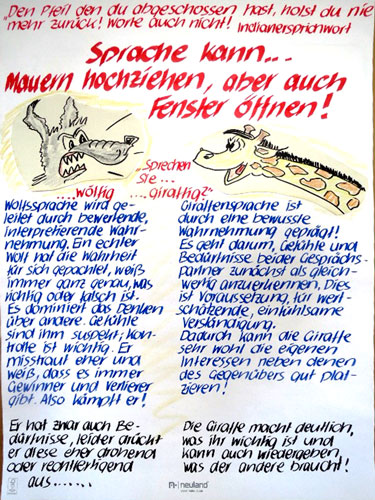 „Den Pfeil den du abgeschossen hast, holst du nie
mehr zurück! Worte auch nicht! Indianersprichwort
Sprache kann...
Mauern hochziehen, aber auch
Fenster öffnen!
„Sprechen
Sie ...
.... wölfig ... giraffig?“
Wolfssprache wird ge-
leitet durch bewertende,
interpretierende Wahr-
nehmung. Ein echter
Wolf hat die Wahrheit
für sich gepachtet, weiß
immer ganz genau, was
richtig oder falsch ist.
Es dominiert das Denken
über andere. Gefühle
sind ihm suspekt; Kon-
trolle ist wichtig. Er
misstraut eher und
weiß, dass es immer
Gewinner und Verlierer
gibt. Also kämpft er!
Er hat zwar auch Be-
dürfnisse, leider drückt
er diese eher drohend
oder rechtfertigend
aus.......
Giraffensprache ist
durch eine bewusste
Wahrnehmung geprägt!
Es geht darum, Gefühle und
Bedürfnisse beider Gesprächs-
partner zunächst als gleich-
wertig anzuerkennen. Dies
ist Voraussetzung, für wert-
schätzende, einfühlsame
Verständigung.
Dadurch kann die Giraffe
sehr wohl die eigenen
Interessen neben denen
des Gegenübers gut plat-
zieren!
Die Giraffe macht deutlich,
was ihr wichtig ist und
kann auch wiedergeben,
was der andere braucht!
neuland